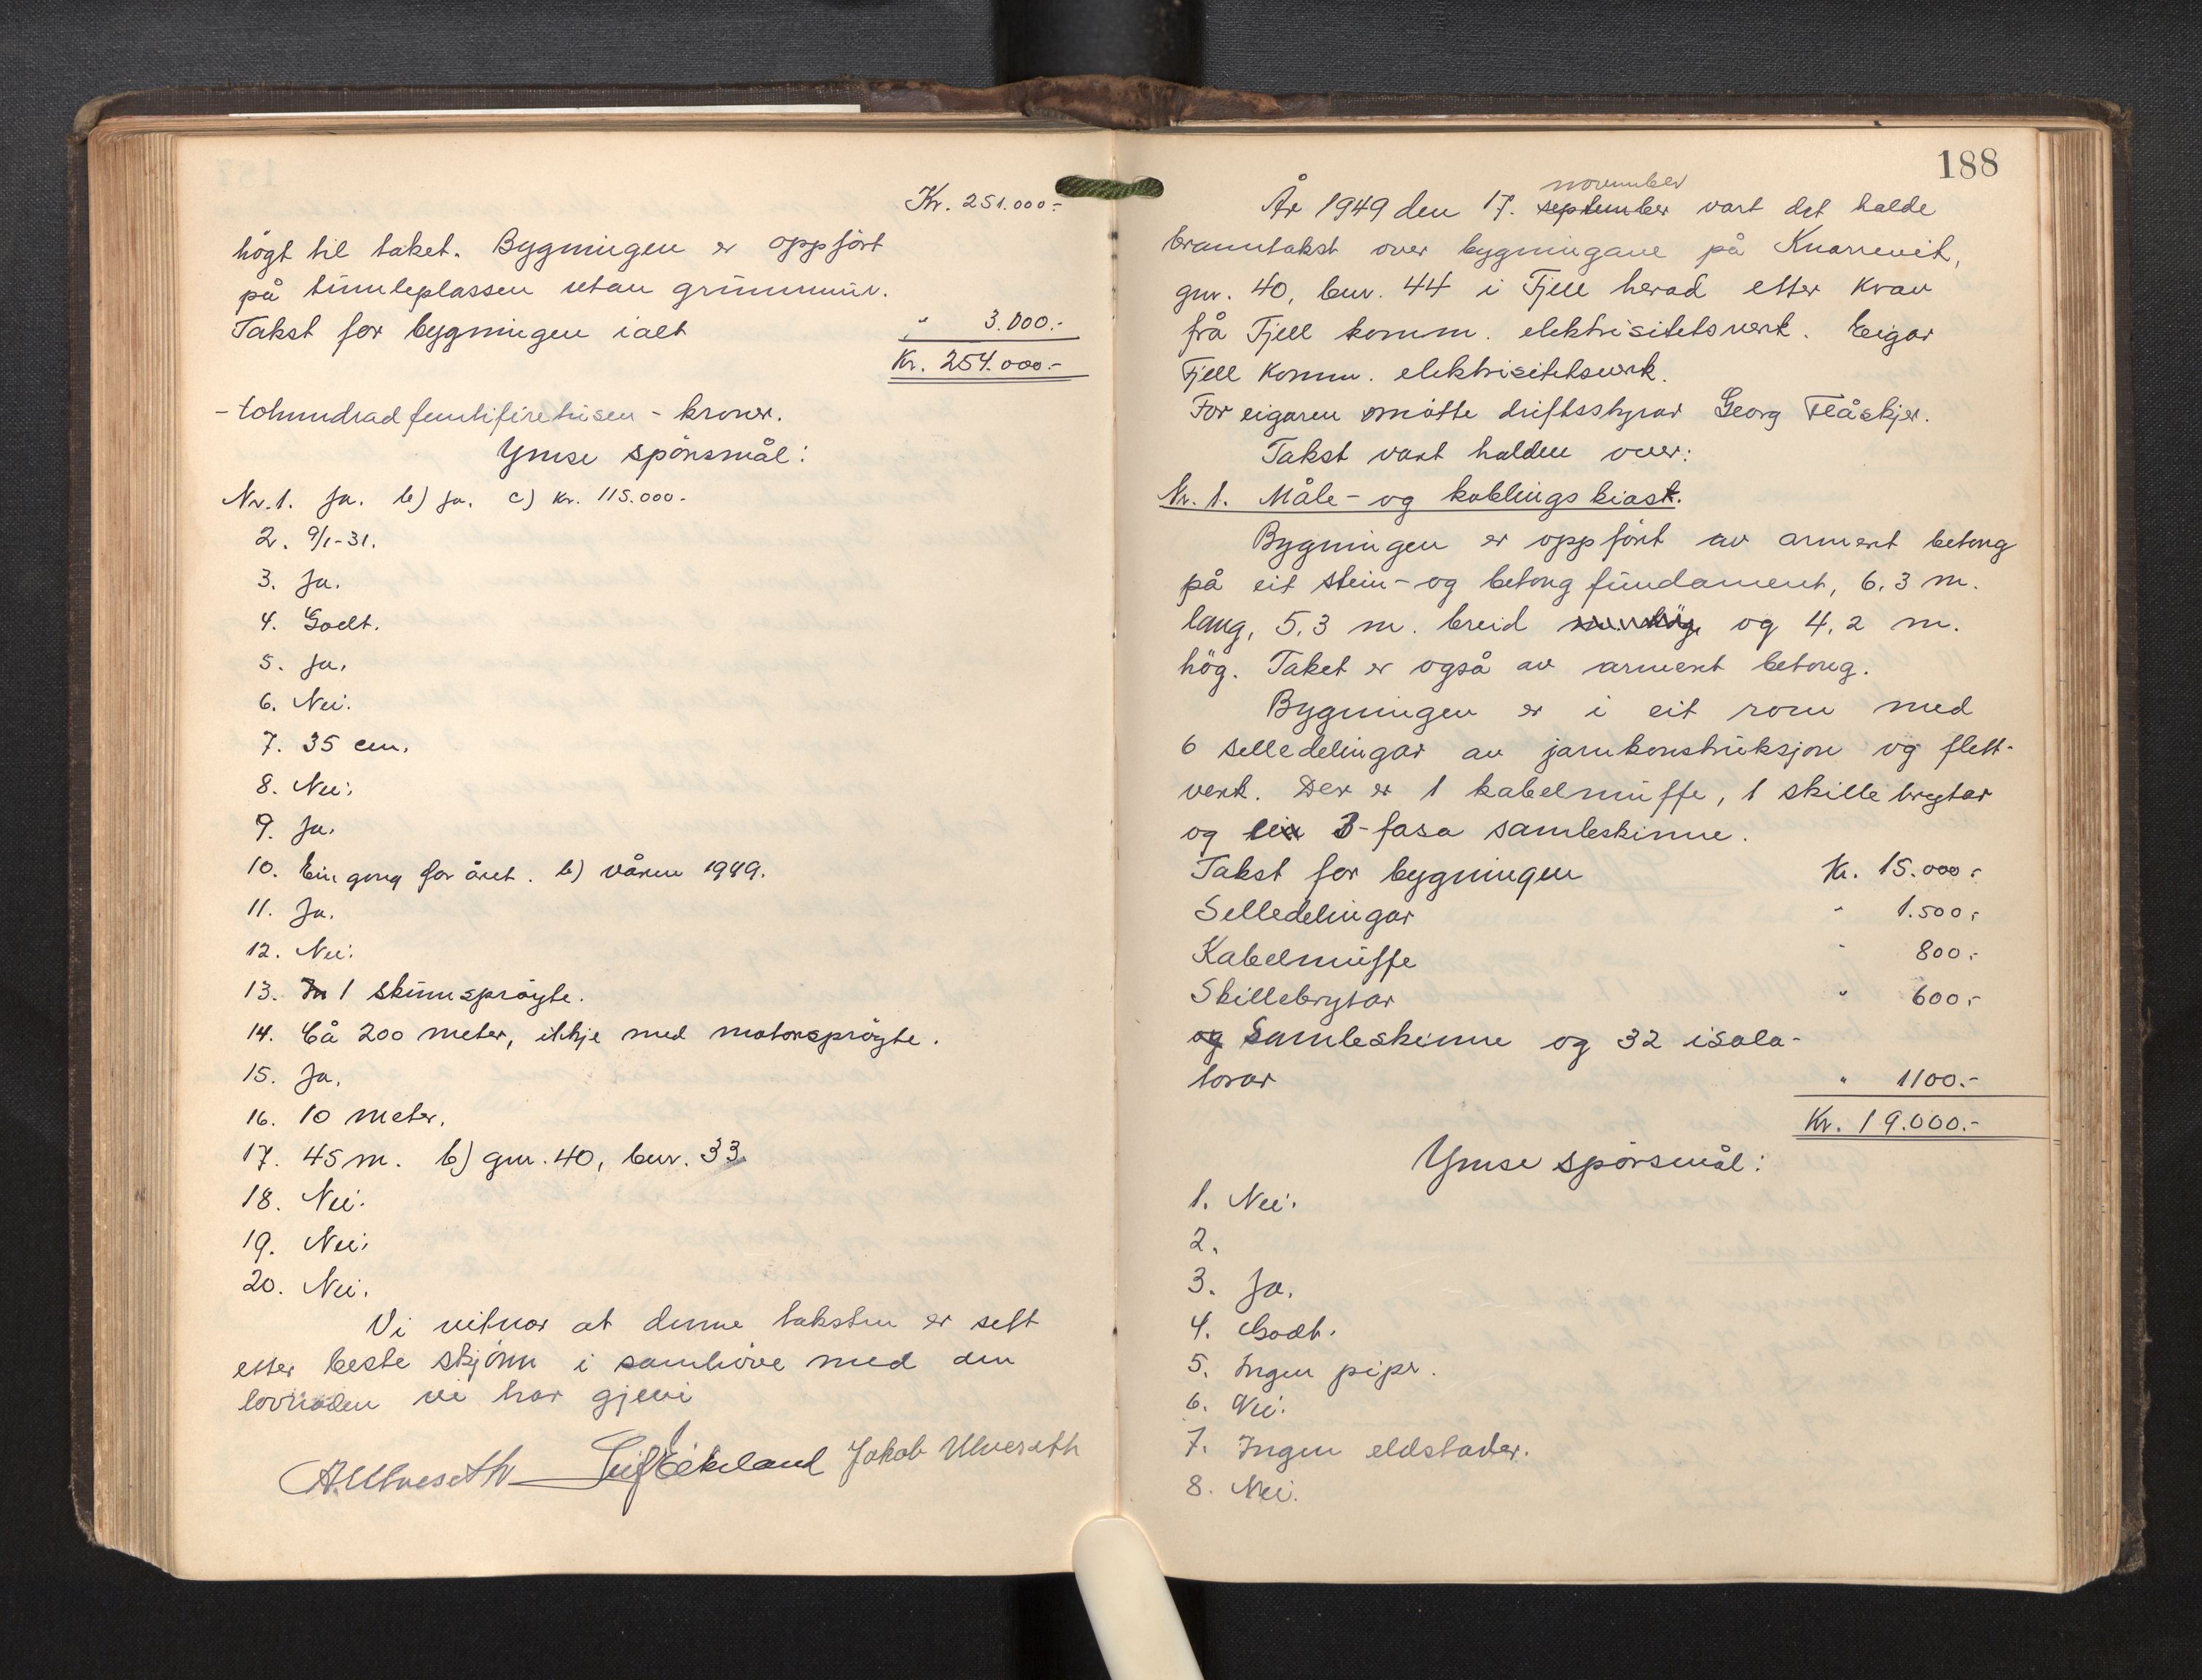 Kr. 251.000:-
högt til taket. Bygningen er oppfört
på tünneplassen utan grünnmür.
Takst for bygningen ialt " 3.000.-
Kr. 254.000.-
- tohundrad femtifiretusen - kroner.
Ymse spörsmål:
Nr. 1. Ja. b) Ja. c) Kr. 115.000.-
2. 9/1-31.
3. Ja.
4. Godt.
5. Ja.
6. Nei.
7. 35 cm.
8. Nei.
9. Ja.
10. Ein gong for året. b) våren 1949.
11. Ja.
12. Nei.
13. 1 skümspröyte.
14. Cå 200 meter, ikkje med motorspröyte.
15. Ja.
16. 10 meter.
17. 45 m. b) gnr. 40, bnr. 33.
18. Nei.
19. Nei.
20. Nei.
Vi vitnar at denne taksten er sett
etter beste skjönn i samhöve med den
lovnaden vi har gjevi
A. Ulveseth Leif Eikeland Jakob Ulveseth
188
november
År 1949 den 17. september vart det halde
branntakst over bygningane på Knarrevik,
gnr. 40, bnr. 44 i Fjell herad etter krav
frå Fjell komm. elektrisitetsverk. Eigar
Fjell Komm. elektrisitetsverk.
For eigaren mötte driftsstyrar Georg Flåskjer.
Takst vart halden over:
Nr. 1. Måle- og koblingskiosk.
Bygningen er oppfört av armert betong
på eit stein- og betong fündament, 6,3 m.
lang, 5,3 m. breid og 4,2 m.
hög. Taket er også av armert betong.
Bygningen er i eit rom med
6 selledelingar av jarnkonstrüksjon og flett-
verk. Der er 1 kabelmüffe, 1 skillebrytar
og ein 3-fasa samleskinne.
Takst for bygningen Kr. 15.000:-
Selledelingar " 1.500:-
Kabelmüffe " 800:-
Skillebrytar " 600:-
og Samleskinne og 32 isola-
torar " 1100.-
Kr. 19.000.-
Ymse spörsmål:
1. Nei.
2.
3. Ja.
4. Godt.
5. Ingen piper.
6. Nei.
7. Ingen eldstader.
8. Nei.